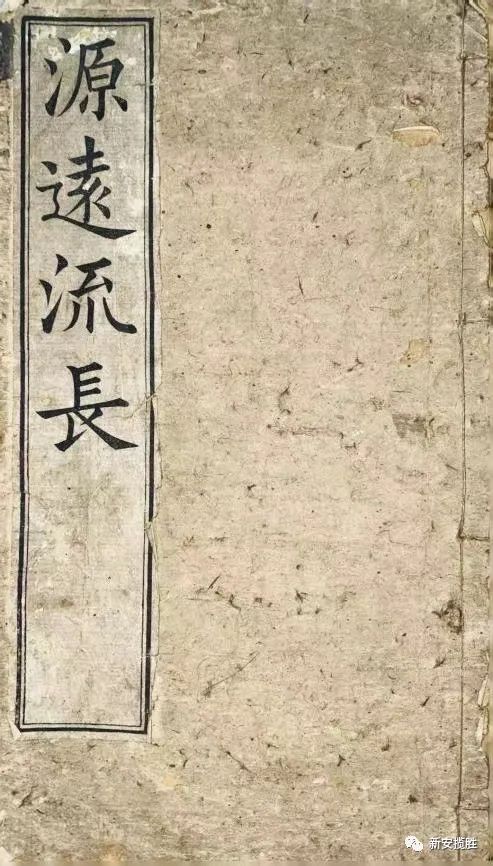 源遠流長
新安揽胜